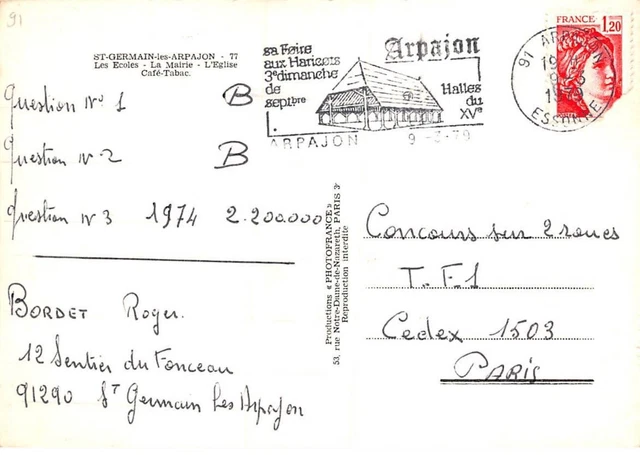 91
ST-GERMAIN-les-ARPAJON - 77
Les Ecoles - La Mairie - L'Eglise
Café-Tabac.
sa Foire
aux Haricots
3e dimanche
de
septbre
Arpajon
Halles
du
XVe
ARPAJON 9 -3-79
FRANCE
1,20
91 ARPAJON
ESSONNE
Question N° 1 B
Question N° 2 B
Question N° 3 1974 2.200.000
BORDET Roger.
12 Sentier du Fonceau
91290 ST Germain Les Arpajon
Productions « PHOTOFRANCE »
53, rue Notre-Dame-de-Nazareth, PARIS 3e
Reproduction interdite
Concours sur 2 roues
T.F.1
Cedex 1503
PARIS